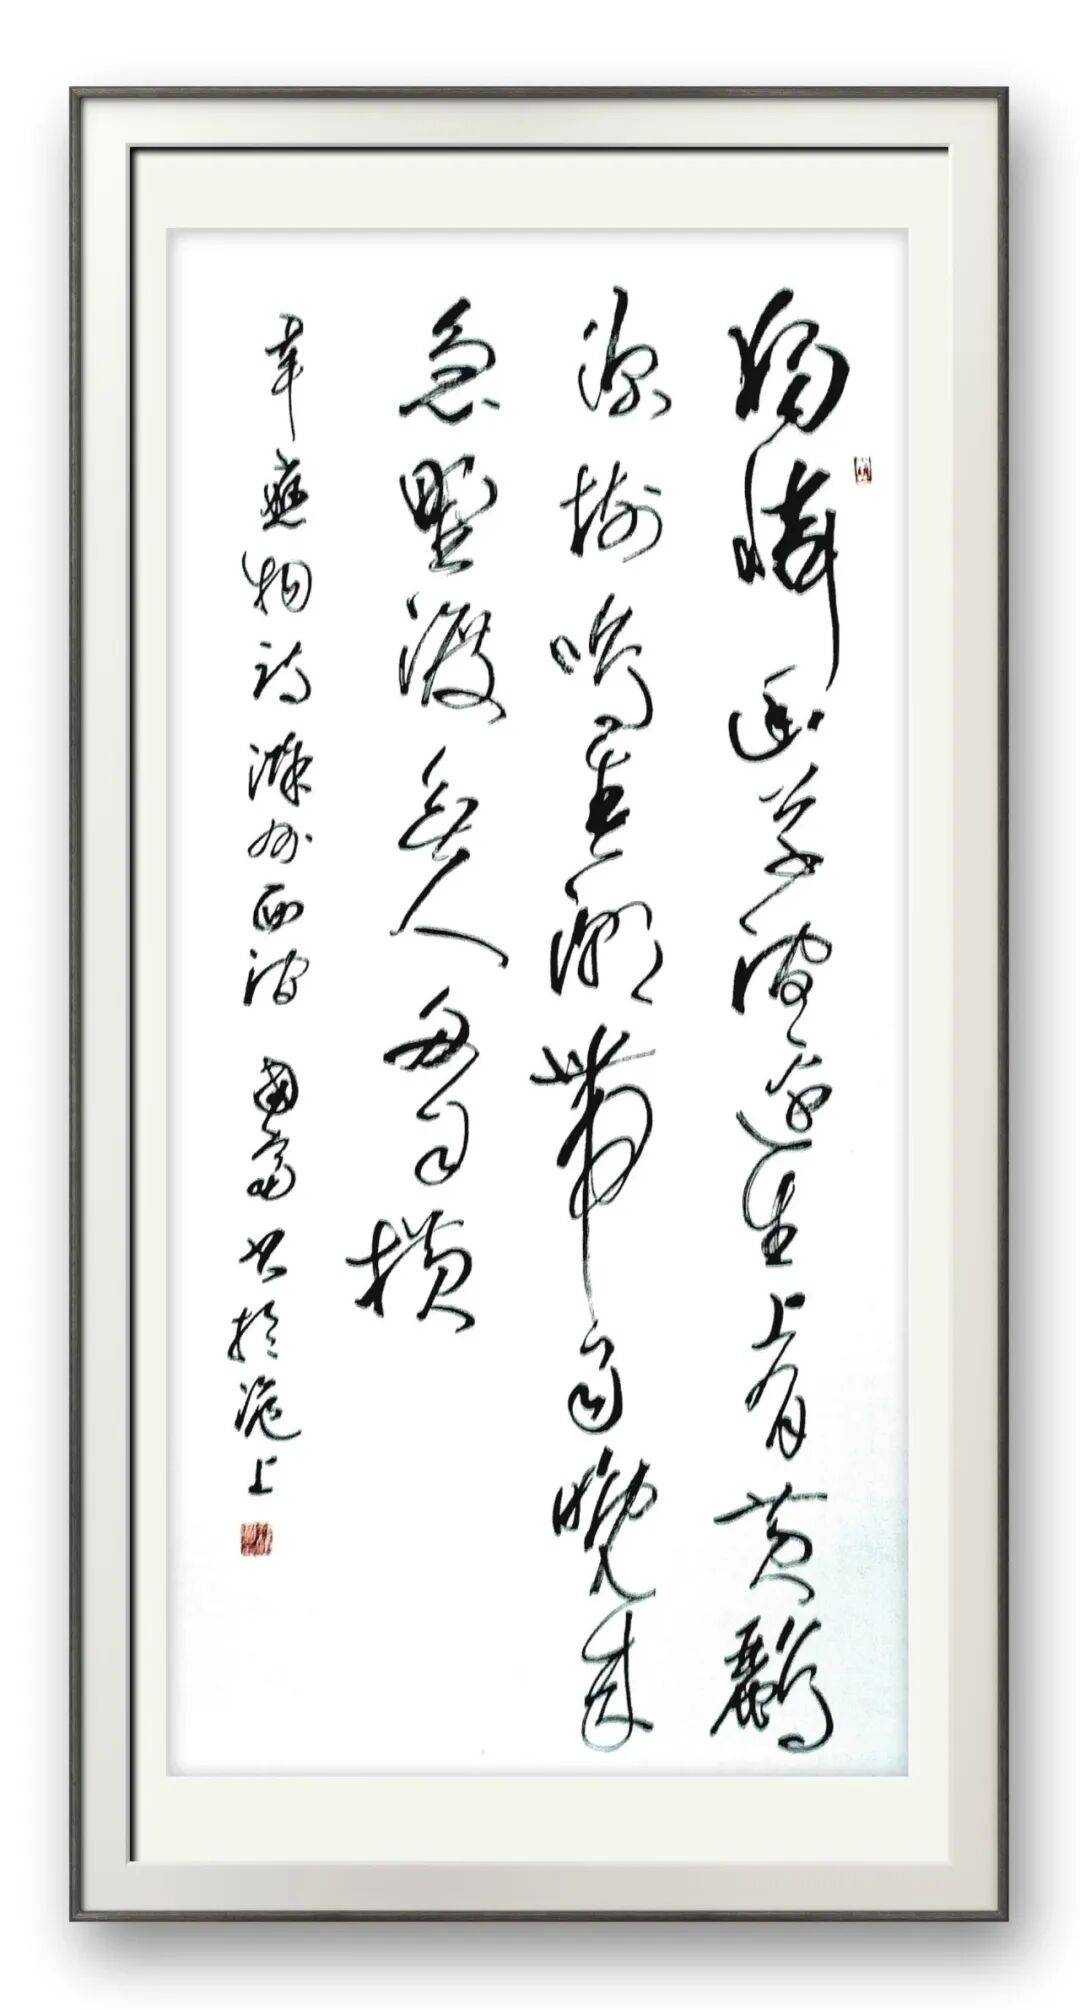 獨憐幽草澗邊生上有黃鸝
深樹鳴春潮帶雨晚來
急野渡無人舟自橫
韋應物詩滁州西澗 書於滬上